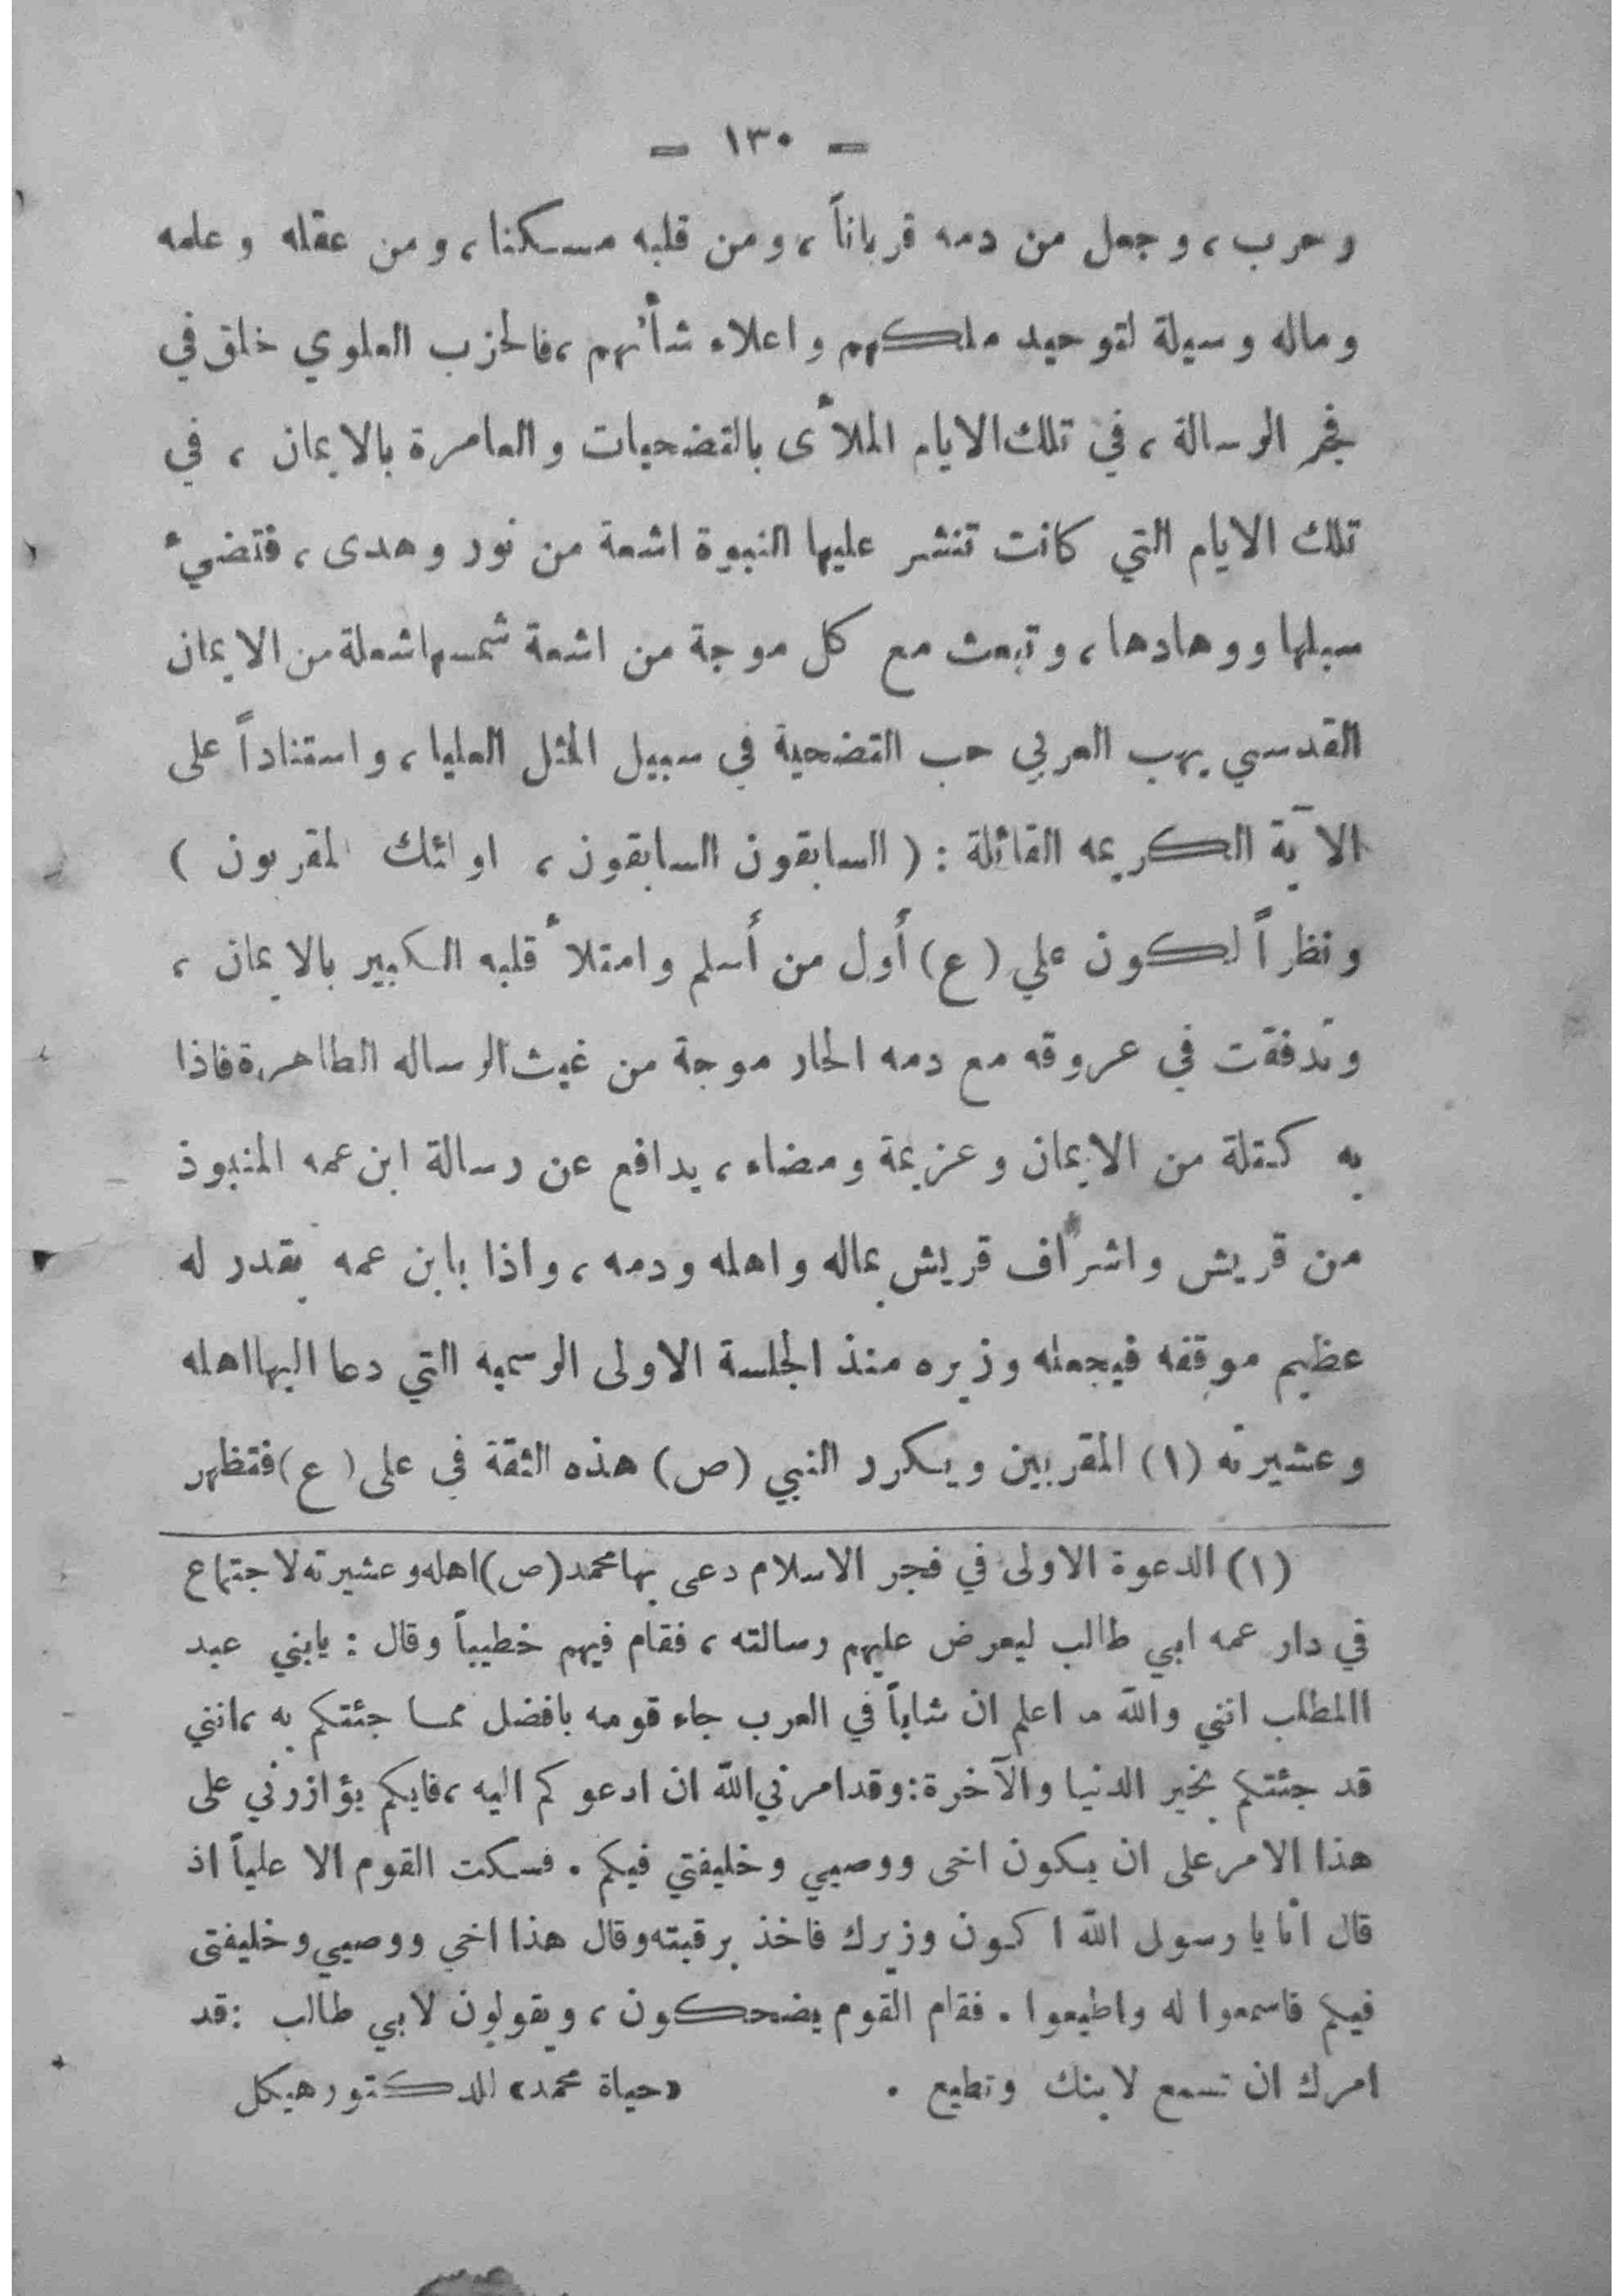 — ١٣٠ —
وحرب، وجعل من دمه قرباناً، ومن قلبه مسكنا، ومن عقله وعلمه
وماله وسيلة لتوحيد ملكهم واعلاء شأنهم، فالحزب العلوي خلق في
فجر الرسالة، في تلك الايام الملأى بالتضحيات والعامرة بالايمان، في
تلك الايام التي كانت تنشر عليها النبوة اشعة من نور وهدى، فتضيء
سبلها ووهادها، وتبعث مع كل موجة من اشعة شمسها شعلة من الايمان
القدسي يهب العربي حب التضحية في سبيل المثل العليا، واستناداً على
الآية الكريمه القائلة : ( السابقون السابقون، اولئك المقربون )
ونظراً لكون علي (ع) أول من أسلم وامتلأ قلبه الكبير بالايمان ،
وتدفقت في عروقه مع دمه الحار موجة من غيث الرساله الطاهرة فاذا
به كتلة من الايمان وعزيمة ومضاء، يدافع عن رسالة ابن عمه المنبوذ
من قريش واشراف قريش بماله واهله ودمه، واذا بابن عمه يقدر له
عظيم موقفه فيجعله وزيره منذ الجلسة الاولى الرسميه التي دعا اليها اهله
وعشيرته (١) المقربين ويكرر النبي (ص) هذه الثقة في على (ع) فتظهر
(١) الدعوة الاولى في فجر الاسلام دعى بها محمد (ص) اهله وعشيرته لاجتماع
في دار عمه ابي طالب ليعرض عليهم رسالته، فقام فيهم خطيباً وقال : يابني عبد
االمطلب انني والله ما اعلم ان شاباً في العرب جاء قومه بافضل مما جئتكم به، انني
قد جئتكم بخير الدنيا والآخرة: وقد امرني الله ان ادعوكم اليه، فايكم يؤازرني على
هذا الامر على ان يكون اخى ووصيي وخليفتي فيكم . فسكت القوم الا علياً اذ
قال انا يا رسول الله اكون وزيرك فاخذ برقبته وقال هذا اخي ووصيي وخليفتى
فيكم فاسمعوا له واطيعوا . فقام القوم يضحكون، ويقولون لابي طالب : قد
امرك ان تسمع لابنك وتطيع . «حياة محمد» للدكتور هيكل